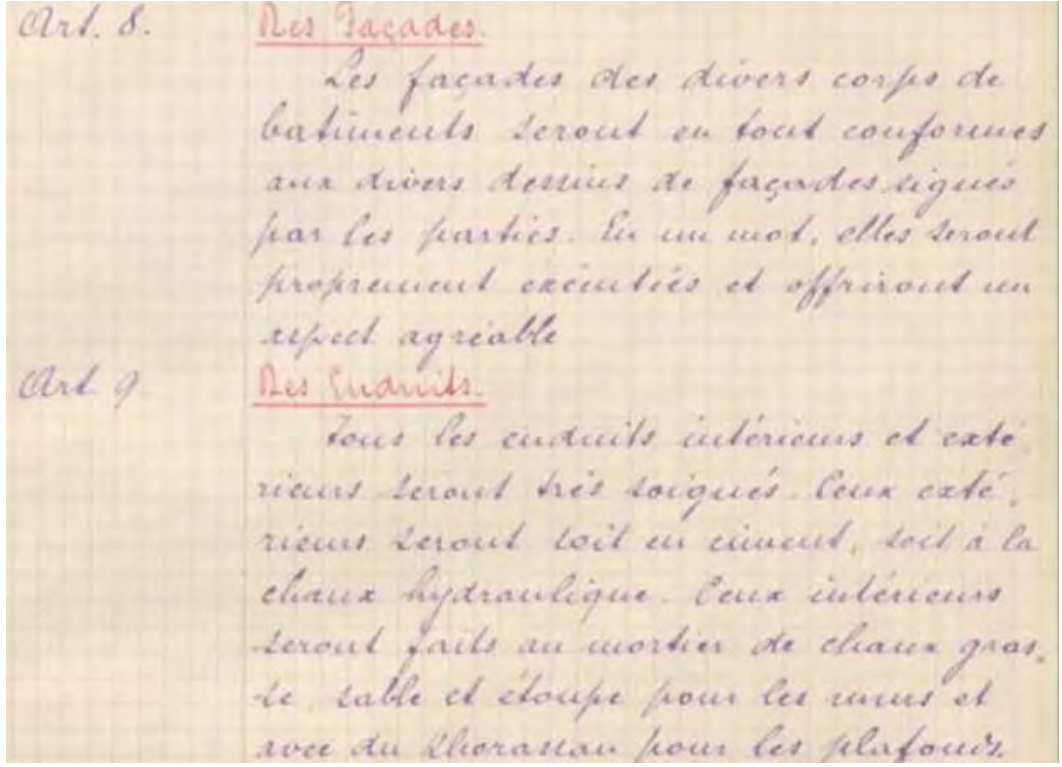 Art. 8. Des Façades.
Les façades des divers corps de
batiments seront en tout conformes
aux divers dessins de façades signés
par les parties. En un mot, elles seront
proprement exécutées et offriront un
aspect agréable
Art. 9. Des Enduits.
Tous les enduits intérieurs et exté-
rieurs seront très soignés. Ceux exté-
rieurs seront soit en ciment, soit à la
chaux hydraulique. Ceux intérieurs
seront faits au mortier de chaux gras-
se, sable et étoupe pour les murs et
avec du Khorassan pour les plafonds.